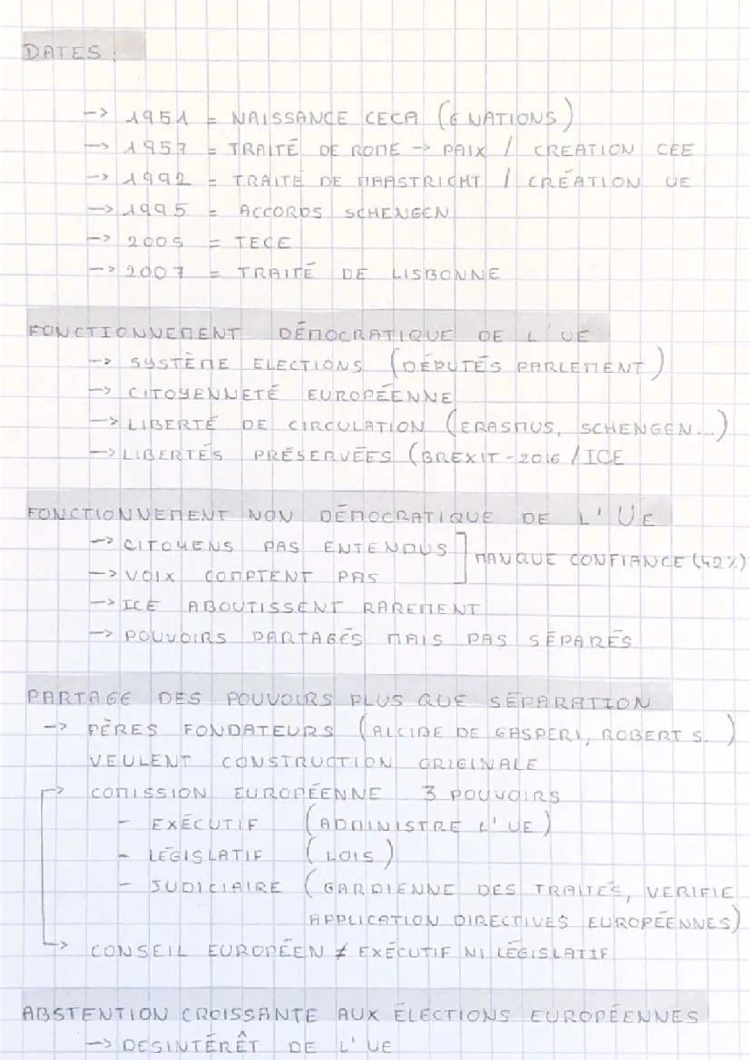 DATES :
-> 1951 = NAISSANCE CECA (6 NATIONS)
-> 1957 = TRAITÉ DE ROME -> PAIX / CREATION CEE
-> 1992 = TRAITÉ DE MAASTRICHT / CRÉATION UE
-> 1995 = ACCORDS SCHENGEN
-> 2005 = TECE
-> 2007 = TRAITÉ DE LISBONNE
FONCTIONNEMENT DÉMOCRATIQUE DE L'UE
-> SYSTÈME ELECTIONS (DÉPUTÉS PARLEMENT)
-> CITOYENNETÉ EUROPÉENNE
-> LIBERTÉ DE CIRCULATION (ERASMUS, SCHENGEN...)
-> LIBERTÉS PRÉSERVÉES (BREXIT - 2016 / ICE
FONCTIONNEMENT NON DÉMOCRATIQUE DE L'UE
-> CITOYENS PAS ENTENDUS ] MANQUE CONFIANCE (42%)
-> VOIX COMPTENT PAS
-> ICE ABOUTISSENT RAREMENT
-> POUVOIRS PARTAGÉS MAIS PAS SÉPARÉS
PARTAGE DES POUVOIRS PLUS QUE SÉPARATION
-> PÈRES FONDATEURS (ALCIDE DE GASPERI, ROBERT S.)
VEULENT CONSTRUCTION ORIGINALE
-> COMISSION EUROPÉENNE 3 POUVOIRS
- EXÉCUTIF (ADMINISTRE L'UE)
- LÉGISLATIF (LOIS)
- JUDICIAIRE (GARDIENNE DES TRAITÉS, VERIFIE
APPLICATION DIRECTIVES EUROPÉENNES)
-> CONSEIL EUROPÉEN ≠ EXÉCUTIF NI LÉGISLATIF
ABSTENTION CROISSANTE AUX ÉLECTIONS EUROPÉENNES
-> DESINTÉRÊT DE L'UE